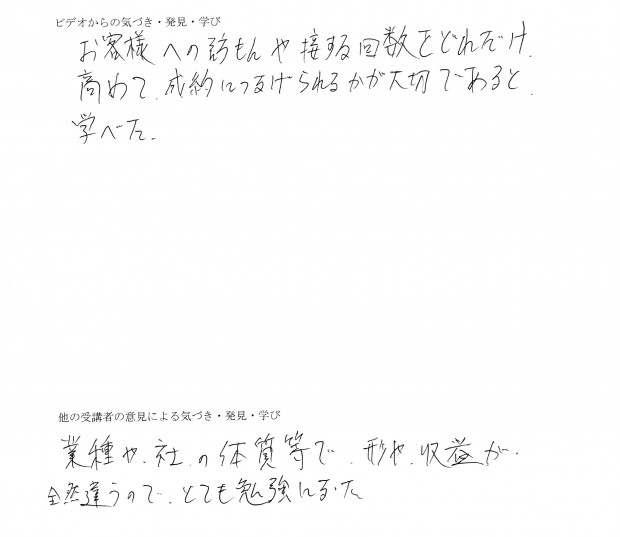 ビデオからの気づき・発見・学び
お客様への訪もんや接する回数をどれだけ
高めて、成約につなげられるかが大切であると
学べた。
他の受講者の意見による気づき・発見・学び
業種や、社の体質等で、形や、収益が、
全然違うので、とても勉強になった